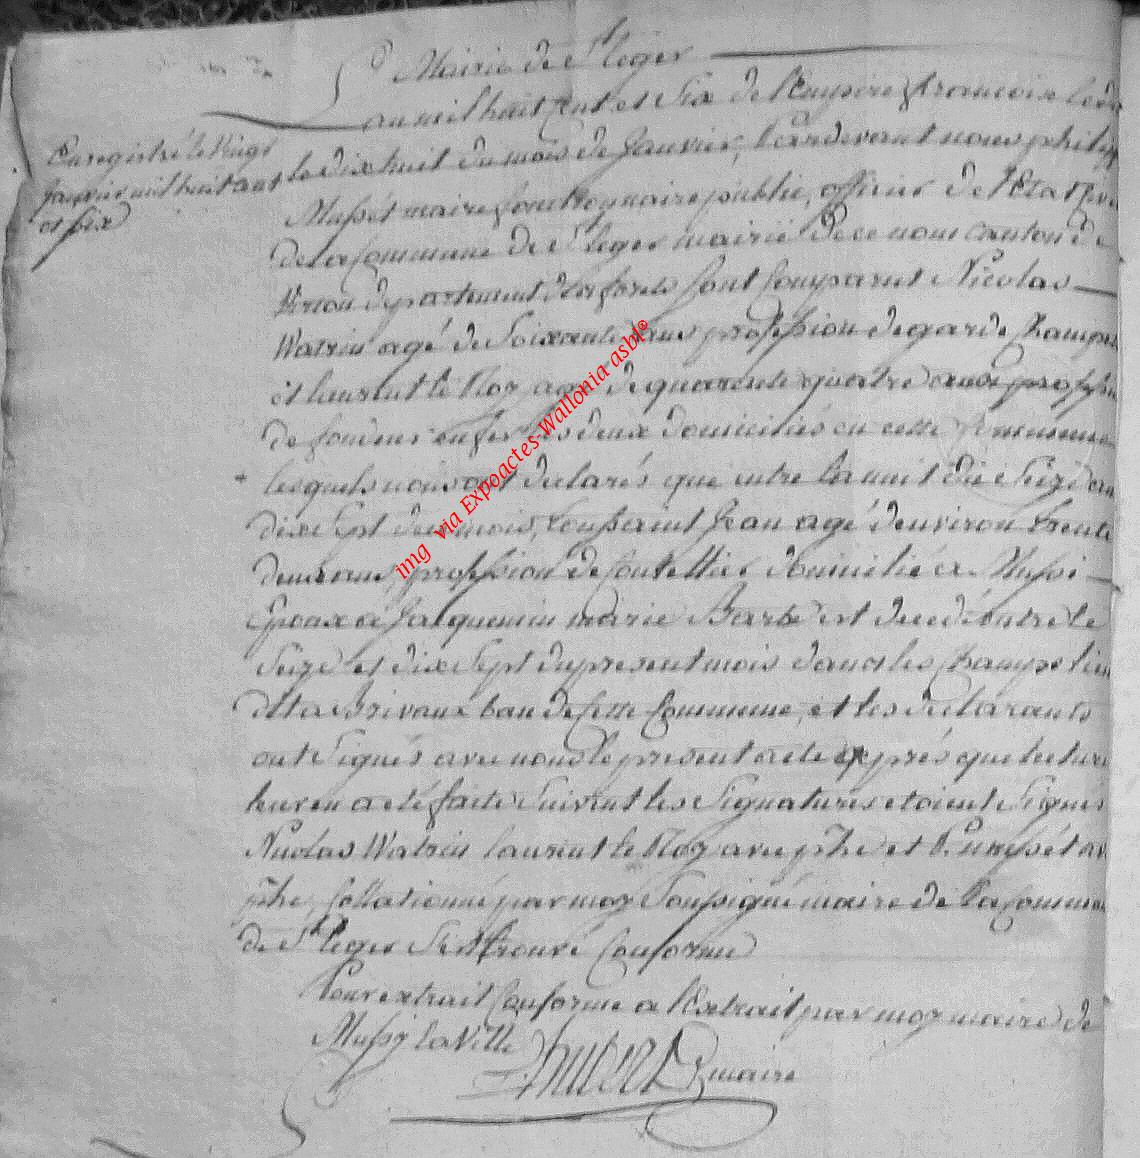 Mairie de St leger
L'an mil huit Cent et Six de l'Empire francois le de
Enregistré le Vingt
Janvier mil huit cent
et Six
le dix huit du mois de Janvier, Pardevant nous philipp
Mussét maire fonctionnaire public, officier de l'Etat Civil
de la Commune de St leger mairie de ce nom canton de
Virton departement des forets sont Comparut Nicolas
Watrin agé de Soixante ans profession de garde Champet
et laurent le Roy agé de quarente quatre ans profession
de fondeur en fer les deux domiciliés en cette Commune
lesquels nous ont declarés que entre la nuit du Seize au
dixe Sept de ce mois, toussaint Jean agé d'environ trente
deux ans, profession de Coutellier domicilié a Mussi
Epoux a Jacquemin marie Barbe est decedé entre le
Seize et dixe Sept du present mois dans les Champs lieu
dit la brivaux ban de Cette Commune, et les declarants
ont Signés avec nous le present acte apprés que lecture
leur en a eté faite Suivent les Signatures etoient Signés
Nicolas Watrin laurent le Roy avec phe et P. mussét av
phe, Collationné par moy Soussigné maire de la Commune
de St leger S'est trouvé Conforme
Pour extrait Conforme a l'Extrait par moy maire de
Mussy la Ville
maire
img via Expoactes-Wallonia asbl©